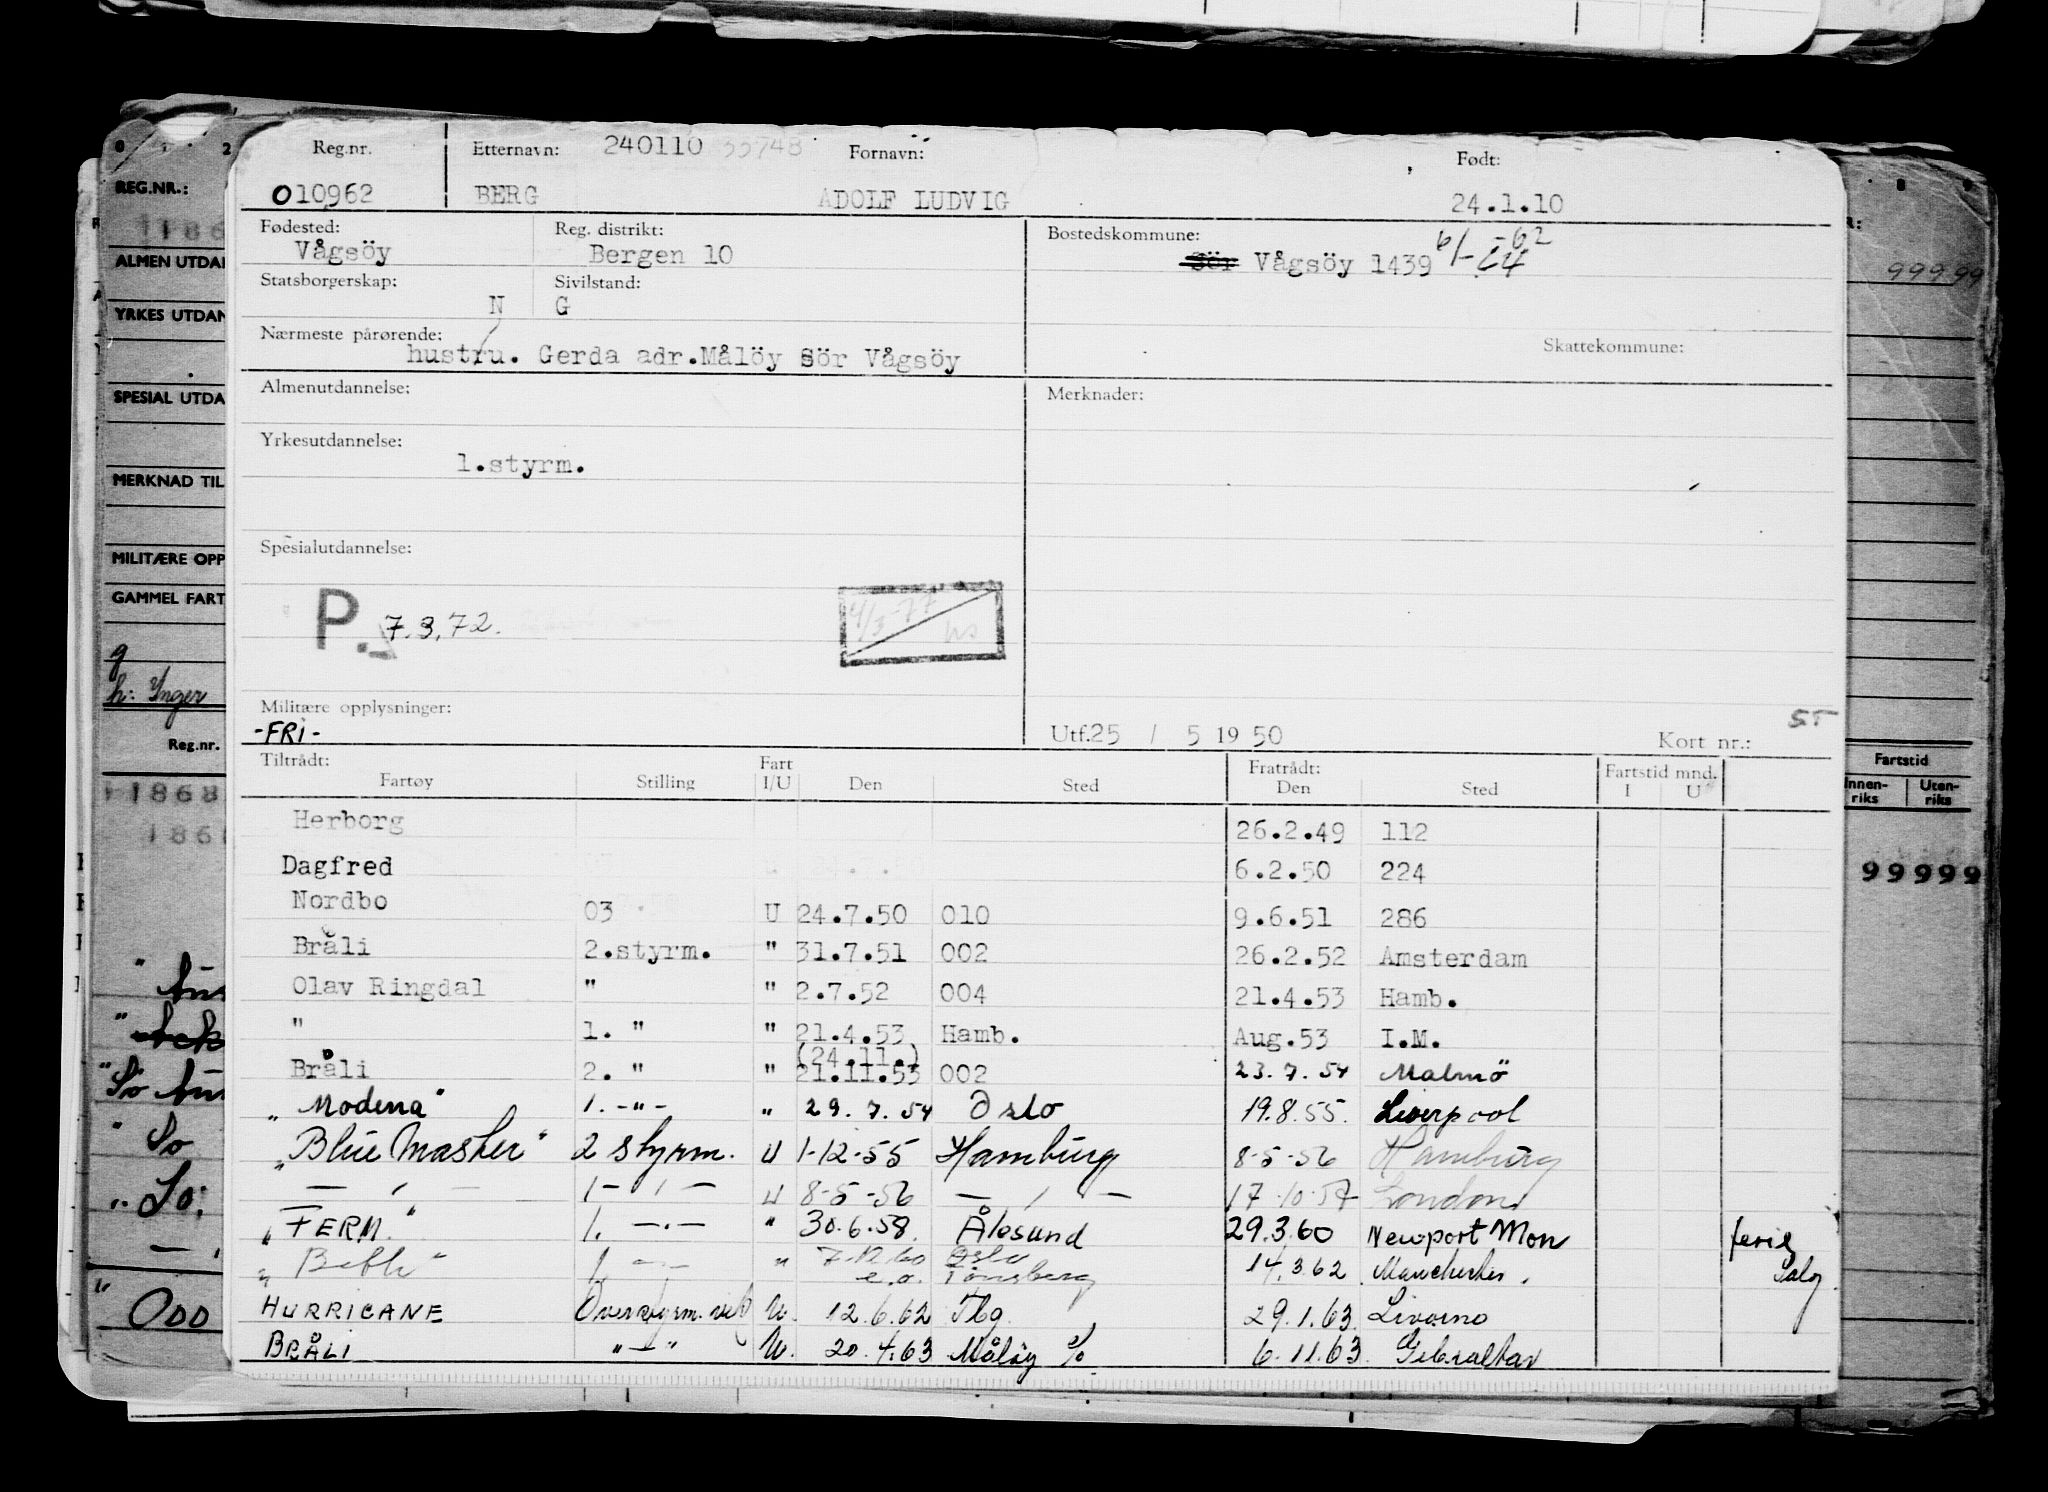 Reg.nr. Etternavn: 240110 55748 Fornavn: Født:
010962 BERG ADOLF LUDVIG 24.1.10
Fødested: Reg. distrikt: Bostedskommune:
Vågsöy Bergen 10 Sör Vågsöy 1439
Statsborgerskap: Sivilstand:
N G
Nærmeste pårørende: Skattekommune:
hustru. Gerda adr.Målöy Sör Vågsöy
Almenutdannelse: Merknader:
Yrkesutdannelse:
1.styrm.
Spesialutdannelse:
P. 7.3.72. 4/3-77
Militære opplysninger: ST
-FRI- Utf.25 / 5 19 50 Kort nr.:
Tiltrådt: Fart Fratrådt: Fartstid mnd.
Fartøy Stilling I/U Den Sted Den Sted I U
Herborg 26.2.49 112
Dagfred 6.2.50 224
Nordbo 03 U 24.7.50 010 9.6.51 286
Bråli 2.styrm. " 31.7.51 002 26.2.52 Amsterdam
Olav Ringdal " " 2.7.52 004 21.4.53 Hamb.
" 1. " " 21.4.53 Hamb. Aug.53 I.M.
(24.11.)
Bråli 2. " " 21.11.53 002 23.7.54 Malmö
"Modena" 1. -"- " 29.7.54 Oslo 19.8.55. Liverpool
"Blue Master" 2 styrm. U 1-12-55 Hamburg 8-5-56 Hamburg
— " — 1- " - U 8-5-56 — " — 17-10-57 London
"FERM." 1. -"- " 30.6.58. Ålesund 29.3.60 Newport Mon ferie
" 1 -"- " 7.12.60 Oslo
e.o. Tönsberg 14.3.62 Manchester. Salg
HURRICANE Overstyrm. vik U. 12.6.62 Tbg. 29.1.63. Livorno
BRÅLI "-" U. 20.4.63 Måløy % 6.11.63. Gibraltar
REG.NR.:
ALMEN UTDAN
YRKES UTDAN
SPESIAL UTDA
MERKNAD TIL
MILITÆRE OPP
GAMMEL FART
g
h: Inger
Reg.nr.
1868
ODD
99999
Fartstid
Innen-riks Uten-riks
99999